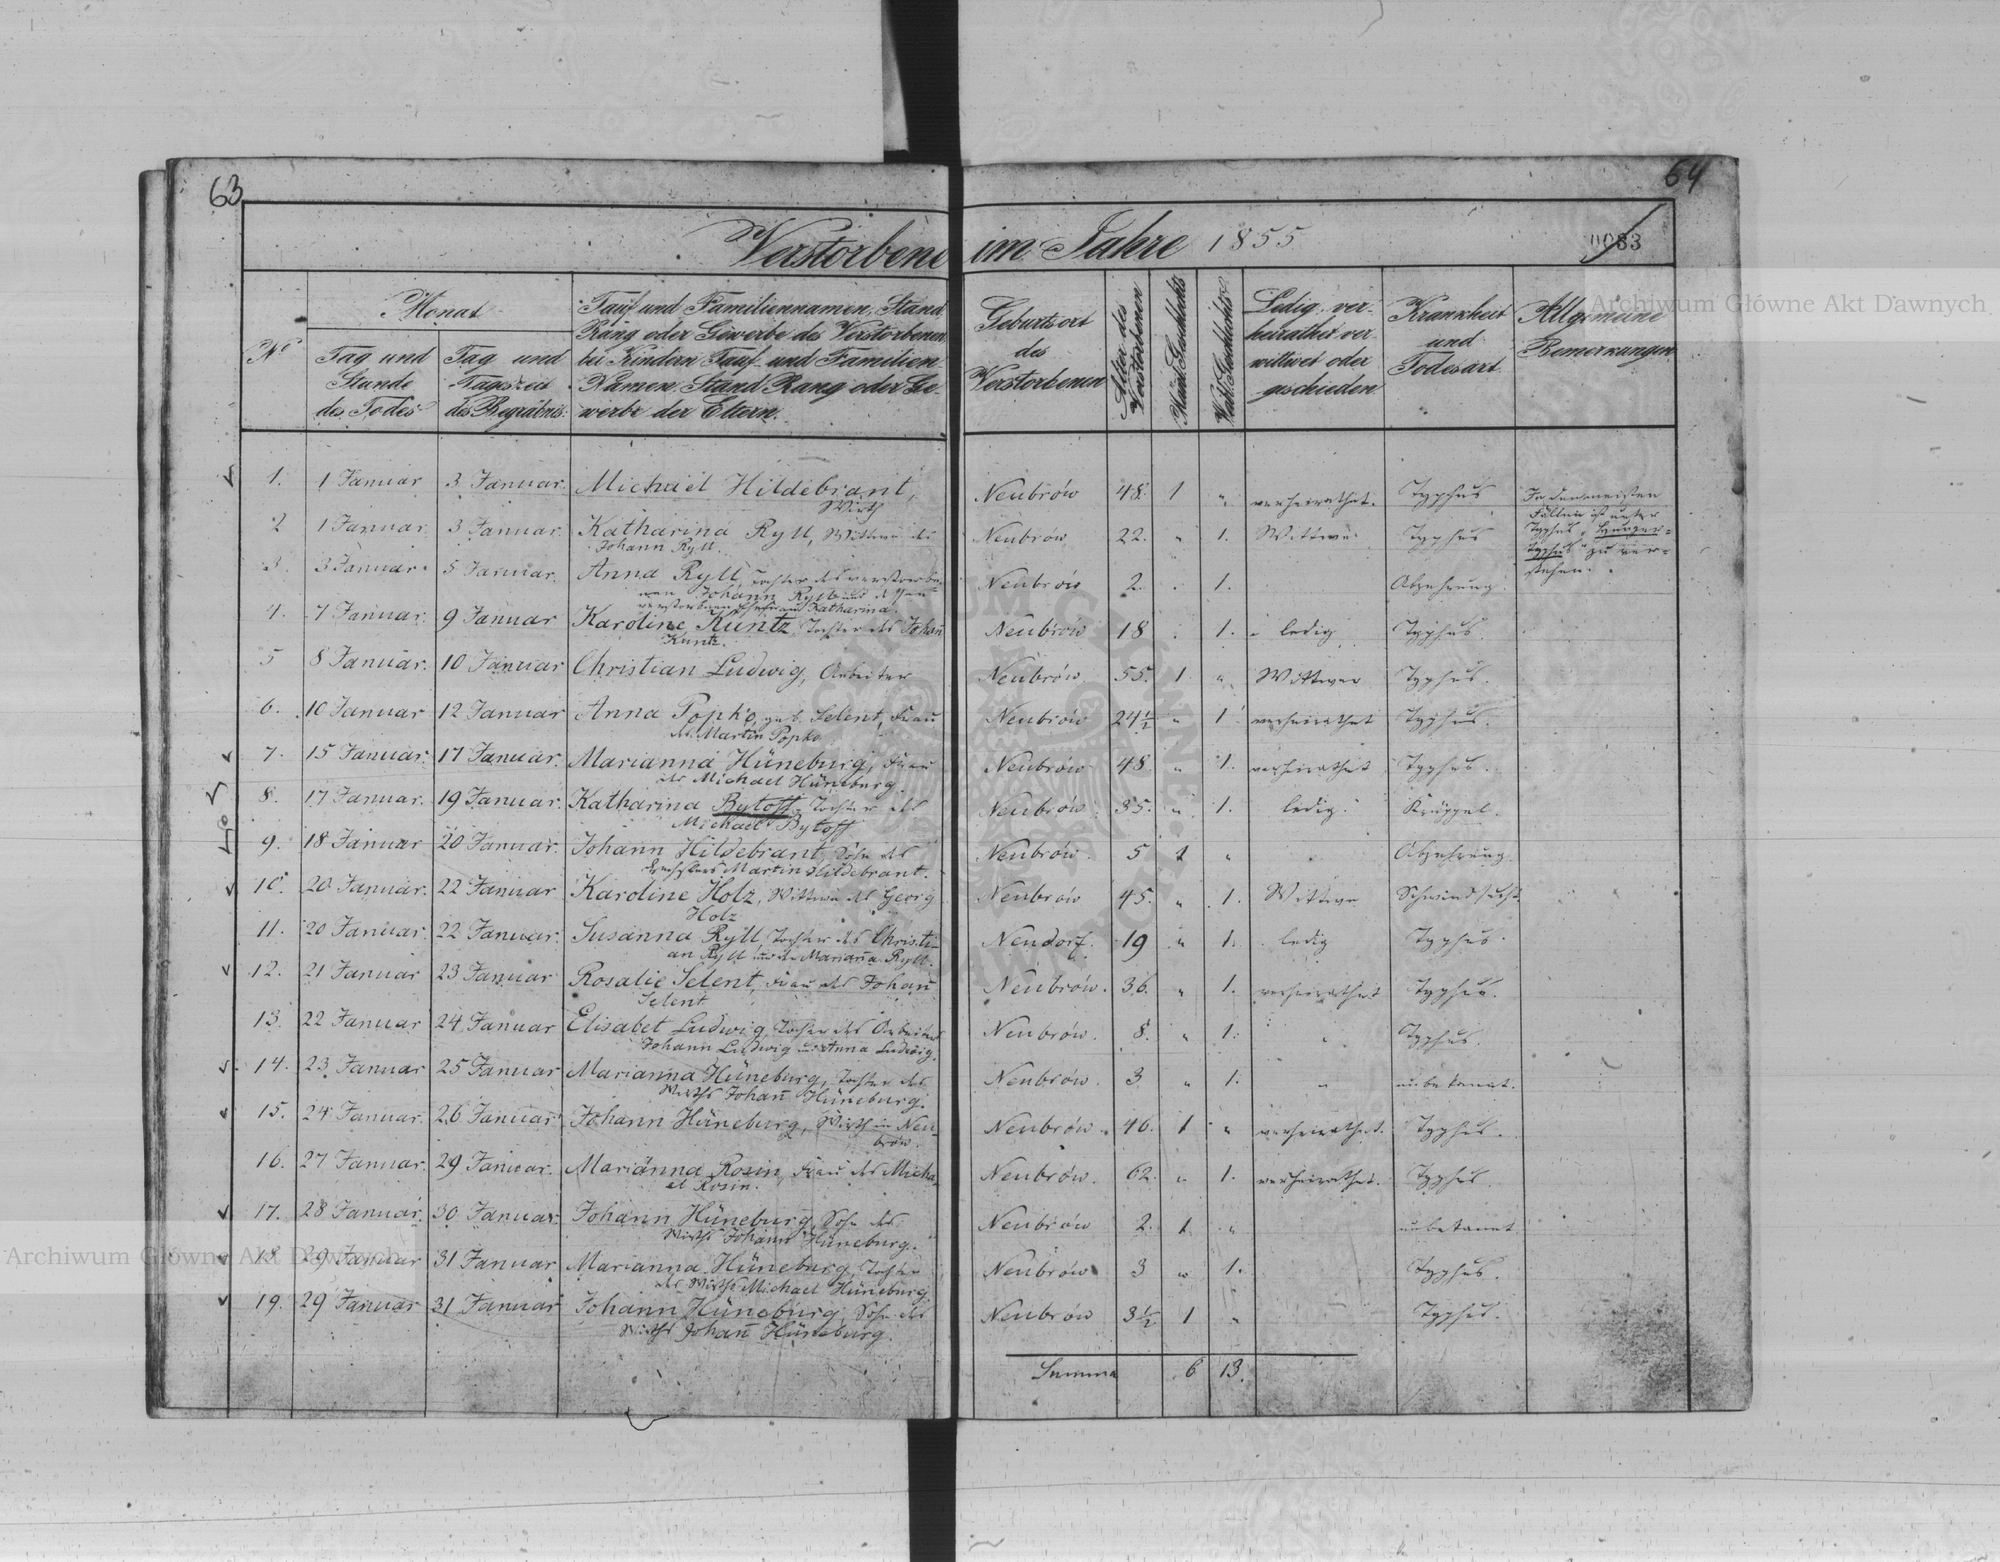 63
64
Verstorbene im Jahre 1855
0083
Nº
Monat
Tag und Stunde des Todes
Tag und Tageszeit des Begräbnis.
Tauf und Familiennamen, Stand
Rang oder Gewerbe des Verstorbenen
bei Kindern Tauf und Familien-
Namen, Stand Rang oder Ge-
werbe der Eltern.
Geburtsort
des
Verstorbenen
Alter des Verstorbenen
Mänl. Geschlechts
Weibl. Geschlechts
Ledig, ver-
heirathet ver-
wittwet oder
geschieden
Krankheit
und
Todesart.
Allgemeine
Bemerkungen
1. 1 Januar 3 Januar. Michael Hildebrant, Neubrów 48. 1 " verheirathet. Typhus
Wirth
In den meisten
Fällen ist unter
Typhus "Hunger-
typhus" zu ver-
stehen.
2 1 Januar. 3 Januar. Katharina Ryll, Wittwe des Neubrów 22. " 1. Wittwe Typhus
Johann Ryll.
3. 3 Januar. 5 Januar. Anna Ryll, Tochter des verstorbe- Neubrów 2. . 1. Abzehrung.
nen Johann Ryll und dessen
verstorbenen Ehefrau Katharina.
4. 7 Januar. 9 Januar Karoline Kuntz, Tochter des Johañ Neubrów 18 . 1. ledig Typhus.
Kuntz.
5 8 Januar. 10 Januar Christian Ludwig, Arbeiter Neubrów. 55. 1 " Wittwer Typhus.
6. 10 Januar 12 Januar Anna Popko, geb. Selent, Frau Neubrów 24½ " 1 verheirathet Typhus.
des Martin Popko
7. 15 Januar. 17 Januar. Marianna Hüneburg, Frau Neubrów 48. " 1. verheirathet Typhus.
des Michael Hüneburg.
8. 17 Januar. 19 Januar. Katharina Bytoff, Tochter des Neubrów. 35. " 1. ledig. Krüppel.
Michael Bytoff
9. 18 Januar 20 Januar. Johann Hildebrant, Sohn des Neubrów. 5 1 " Abzehrung.
Martin Hildebrant.
10. 20 Januar. 22 Januar Karoline Holz, Wittwe des Georg Neubrów 45. " 1. Wittwe Schwindsucht.
Holz
11. 20 Januar. 22 Januar. Susanna Ryll, Tochter des Christi- Neudorf. 19 " 1. ledig Typhus.
an Ryll und der Mariaña Ryll.
12. 21 Januar 23 Januar Rosalie Selent, Frau des Johañ Neubrów. 36. " 1. verheirathet Typhus.
Selent
13. 22 Januar 24 Januar Elisabet Ludwig, Tochter des Arbeiters Neubrów. 8. " 1. " Typhus.
Johann Ludwig u. Anna Ludwig.
14. 23 Januar 25 Januar Marianna Hüneburg, Tochter des Neubrów. 3 " 1. " unbekannt.
Wirths Johañ Hüneburg.
15. 24 Januar. 26 Januar Johann Hüneburg, Wirth in Neu- Neubrów. 46. 1 " verheirathet. Typhus.
brów.
16. 27 Januar. 29 Januar. Marianna Rosin, Frau des Micha- Neubrów. 62. " 1. verheirathet. Typhus.
el Rosin.
17. 28 Januar. 30 Januar. Johann Hüneburg, Sohn des Neubrów 2. 1. " unbekannt
Wirths Johann Hüneburg.
18. 29 Januar 31 Januar Marianna Hüneburg, Tochter Neubrów 3 " 1. Typhus.
des Wirths Michael Hüneburg.
19. 29 Januar 31 Januar Johann Hüneburg, Sohn des Neubrów 3½ 1 " Typhus.
Wirths Johañ Hüneburg.
Summa 6 13.
Archiwum Główne Akt Dawnych
Archiwum Główne Akt Dawnych